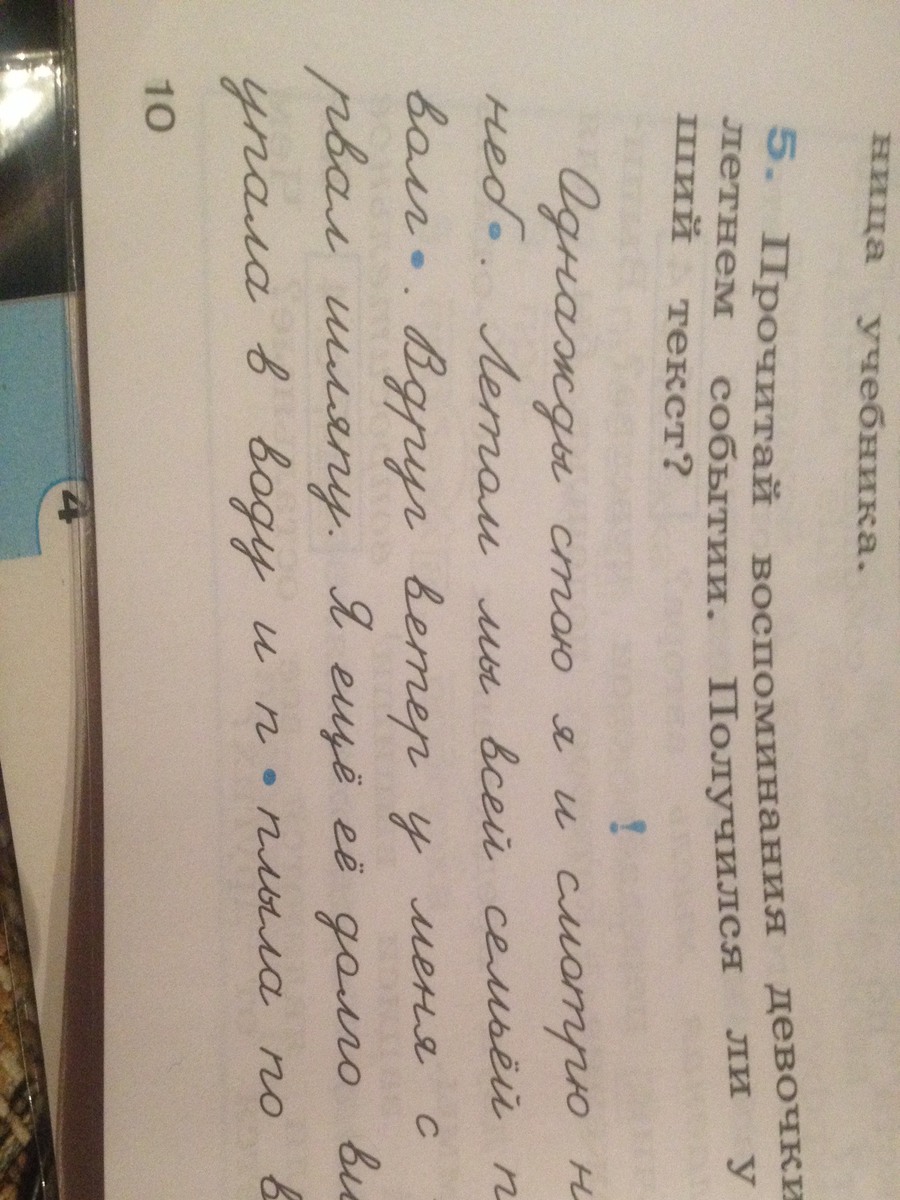 ница учебника.
5. Прочитай воспоминания девочки
летнем событии. Получился ли у
ший текст?
Однажды стою я и смотрю н
неб•. Летом мы всей семьёй п
волг•. Вдруг ветер у меня с
рвал шляпу. Я ещё её долго ви
упала в воду и п•плыла по в
10
4